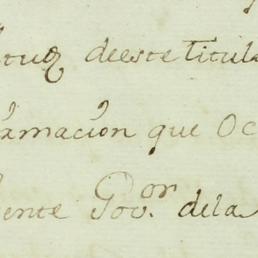 deeste Titul
amacion que Oc
ente Gov.ᵒʳ dela